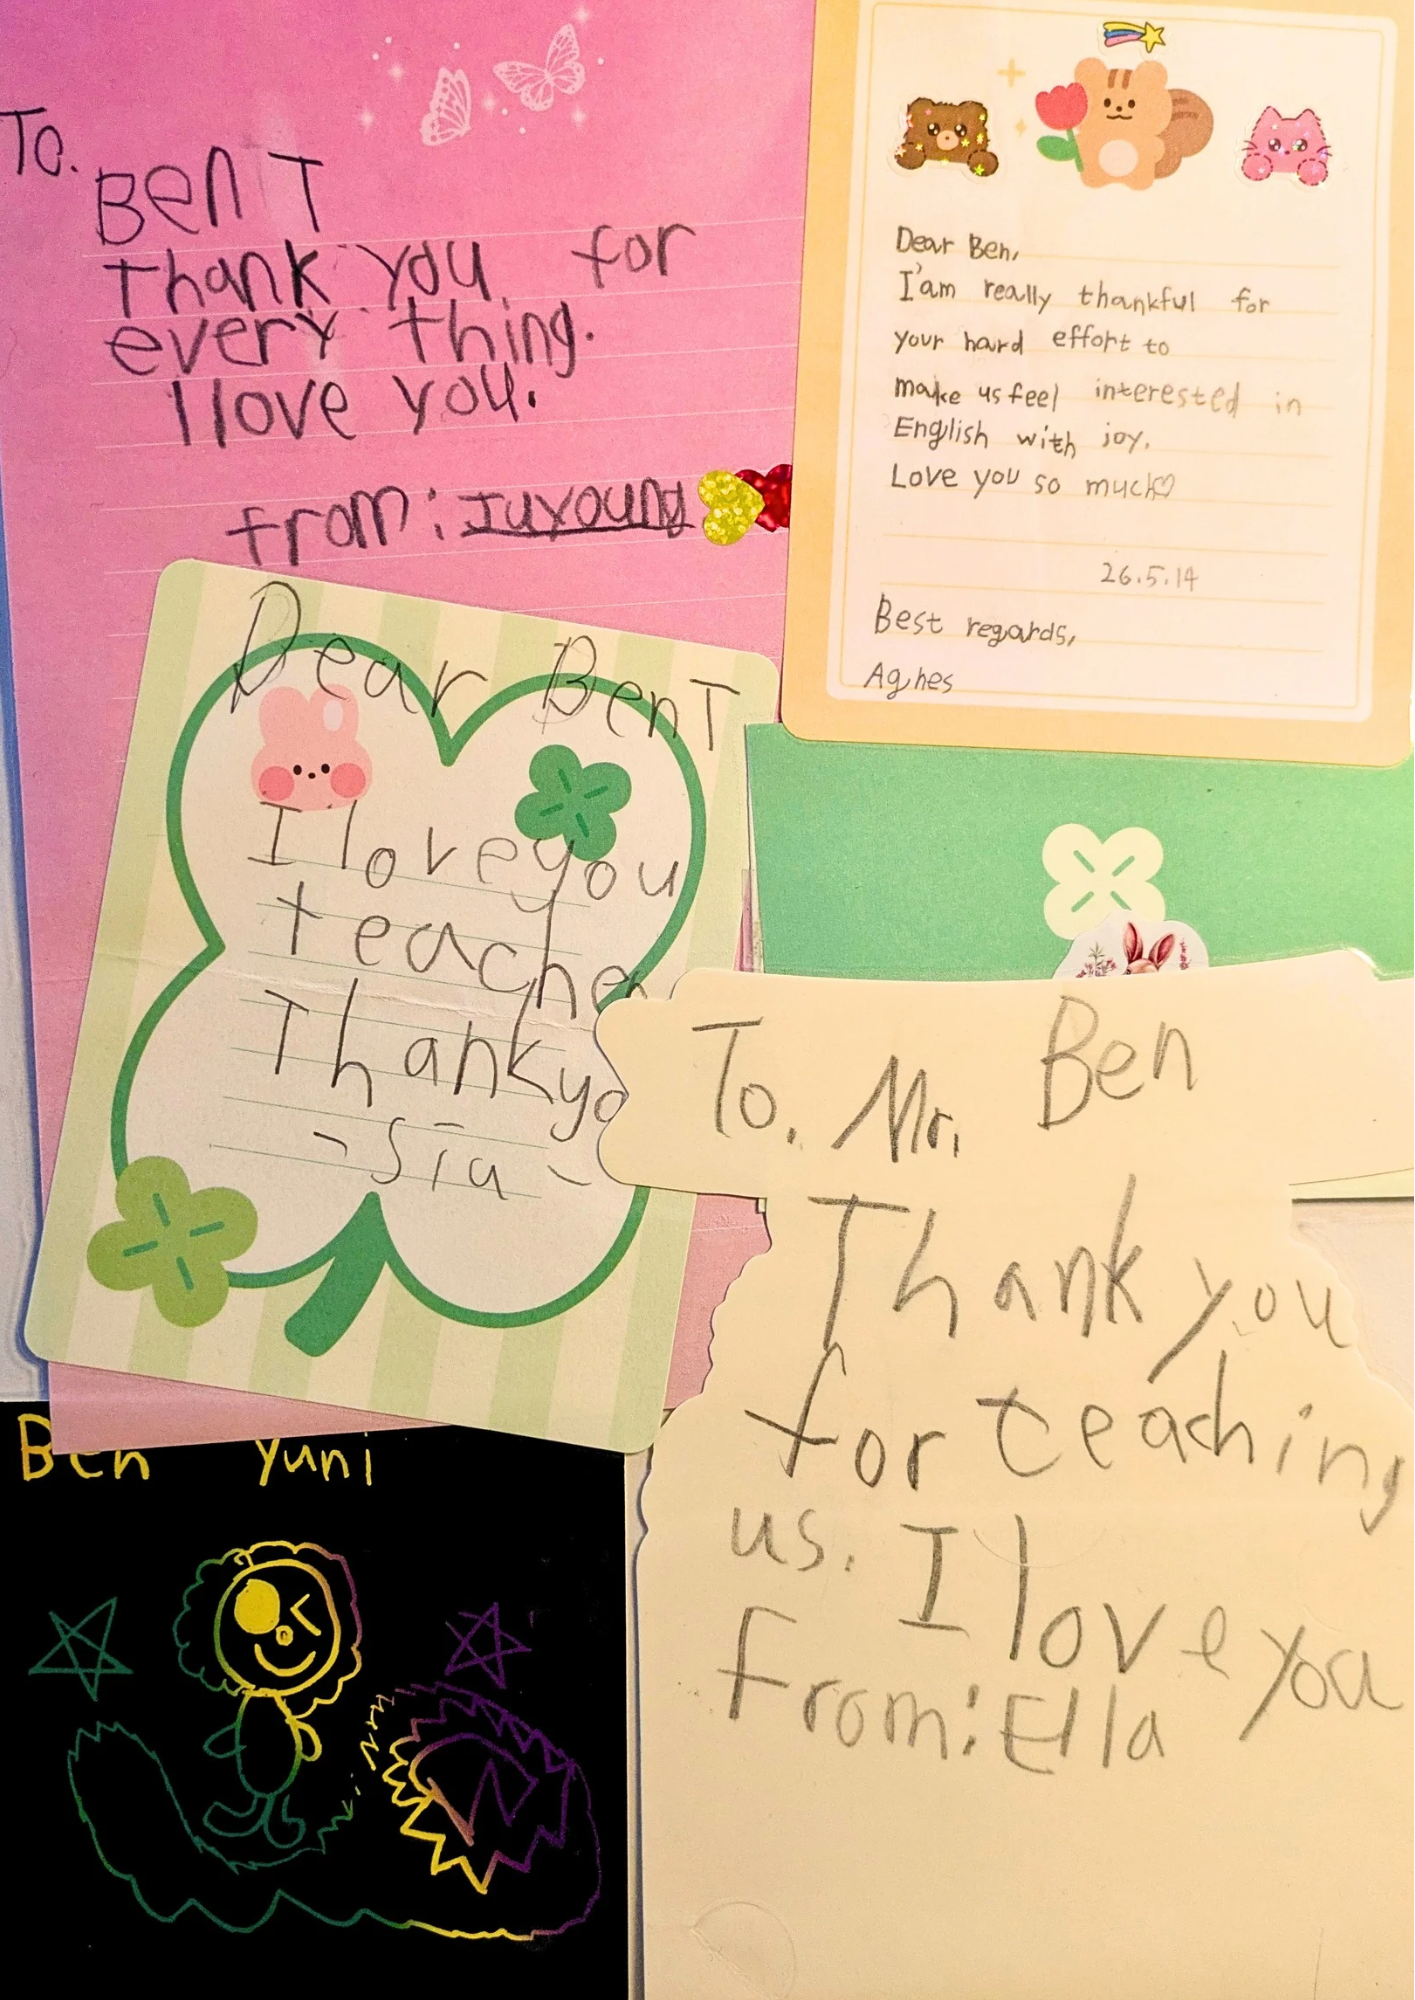 To.
Ben T
Thank you for
every thing.
I love you.
from: Juyoung
Dear Ben,
I'am really thankful for
your hard effort to
make us feel interested in
English with joy.
Love you so much♡
26.5.14
Best regards,
Agnes
Dear Ben T
I love you
teacher
Thank yo
- Sia -
To. Mr. Ben
Thank you
for teaching
us. I love you
From: Ella
Ben Yuni